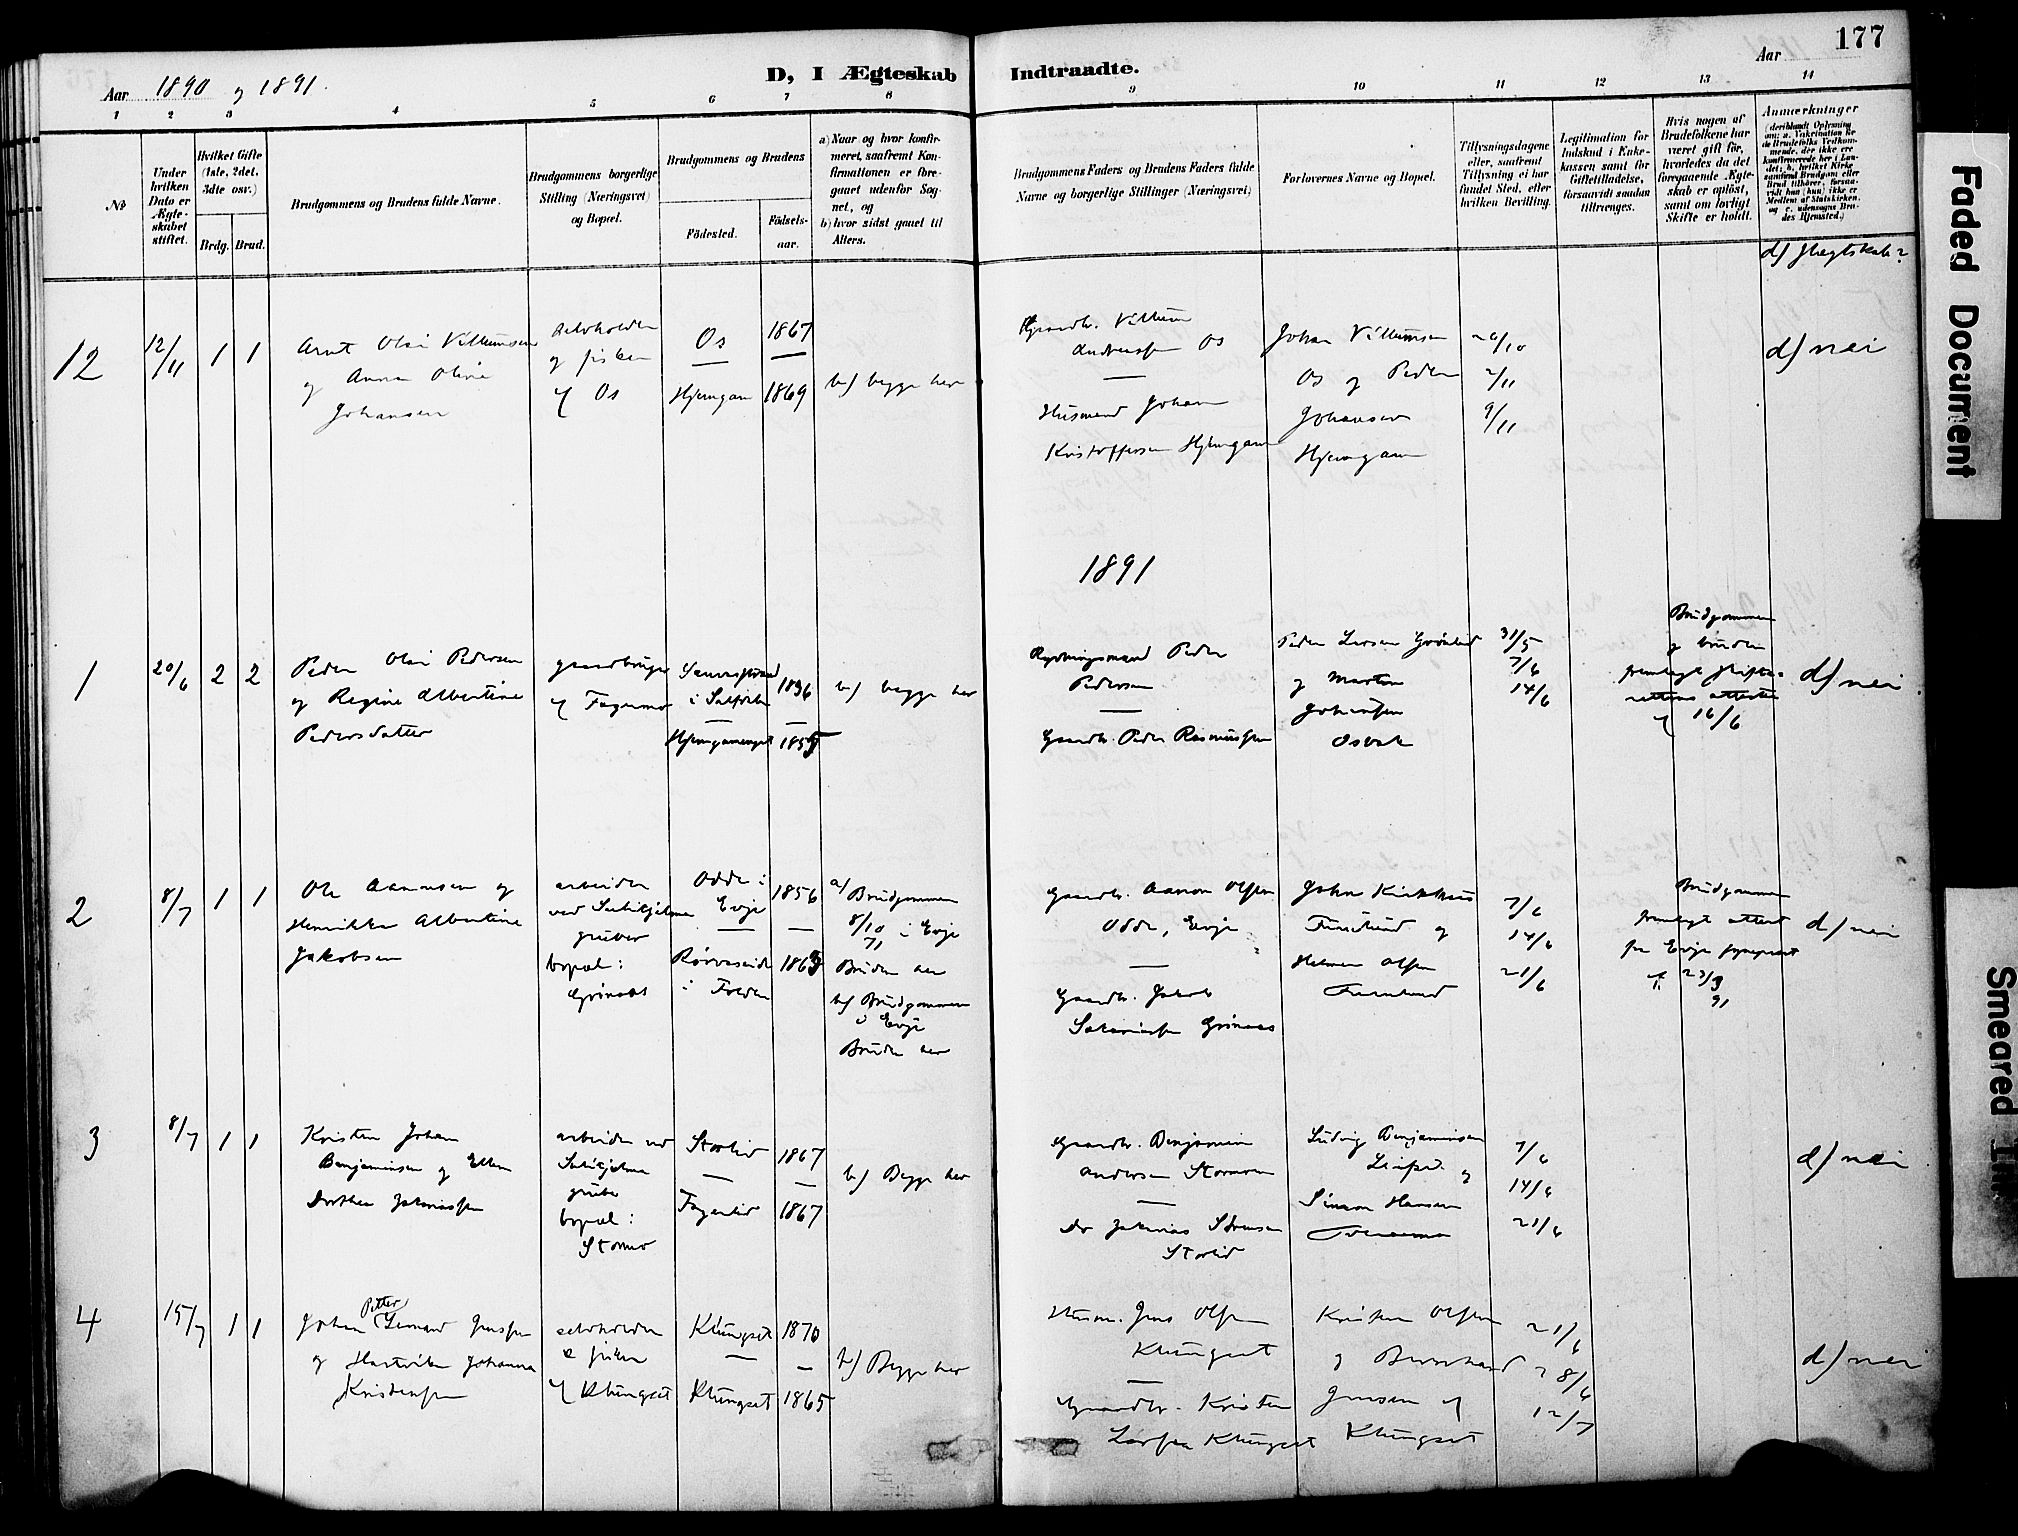 177
D, I Ægteskab Indtraadte.
Aar 1890 og 1891.
Aar
1 2 3 4 5 6 7 8 9 10 11 12 13 14
No
Under hvilken Dato er Ægteskabet stiftet.
Hvilket Gifte (1ste, 2det, 3dte osv.)
Brdg. Brud.
Brudgommens og Brudens fulde Navne.
Brudgommens borgerlige Stilling (Næringsvei) og Bopæl.
Brudgommens og Brudens
Födested.
Födselsaar.
a) Naar og hvor konfirmeret, saafremt Konfirmationen er foregaaet udenfor Sognet, og
b) hvor sidst gaaet til Alters.
Brudgommens Faders og Brudens Faders fulde Navne og borgerlige Stillinger (Næringsvei)
Forlovernes Navne og Bopæl.
Tillysningsdagene eller, saafremt Tillysning ei har fundet Sted, efter hvilken Bevilling.
Legitimation for Indskud i Enkekassen samt for Giftetilladelse, forsaavidt saadan tiltrænges.
Hvis nogen af Brudefolkene har været gift för, hvorledes da det foregaaende Ægteskab er oplöst, samt om lovligt Skifte er holdt.
Anmærkninger
d) Slegtskab?
12
12/11
1 1
Arnt Olai Villumsen
og Anna Oline
Johansen
selvholden
og fisker
af Os
Os
—
Hjemgam
1867
—
1869
b) begge her
Gaardbr. Villum
Andreassen Os
—
Husmand Johan
Kristoffersen Hjemgam
Johan Villumsen
Os og Peder
Johansen
Hjemgam
26/10
2/11
9/11
d) nei
1891
1
20/6
2 2
Peder Olai Pedersen
og Regine Albertine
Pedersdatter
gaardbruger
af Fagermo
i Saltdalen
—
1836
—
1855
b) begge her
Rydningsmand Peder
Pedersen
—
Gaardb. Peder Rasmussen
Peder Larsen Grönlid
og Morten
Johansen
Osbak
31/5
7/6
14/6
Brudgommen
og bruden
fremlagt skifterettens attester
af 16/6
d) nei
2
8/7
1 1
Ole Aanonsen og
Henrikka Albertine
Jakobsen
arbeider
ved Sulitjelma
gruber
bopæl:
Grönaas
Odde i
Evje
—
i Folden
1856
—
1863
a) Brudgommen
8/10 71 i Evje
Bruden her
b) Brudgommen
i Evje
Bruden her
Gaardb. Aanon Olsen
Odde, Evje
—
Gaardb. Jakob
Sakariassen Grönaas
John Kirkhus
Furulund og
Helmer Olsen
Furulund
7/6
14/6
21/6
Brudgommen
fremlagt attest
fra Evje sogneprest
af 23/3 91
d) nei
3
8/7
1 1
Kristen Johan
Benjaminsen og Ellen
Dorthea Zakariassen
arbeider ved
Sulitjelma
gruber
bopæl:
Stormo
Storlid
—
Fagerlid
1867
—
1867
b) Begge her
Gaardb. Benjamin
Andersen Stormoen
—
do Zakarias Sörensen
Storlid
Ludvig Benjaminsen
og
Simon Hansen
7/6
14/6
21/6
d) nei
4
15/7
1 1
Johan Petter Leonard Jenssen
og Hartvikka Johanna
Kristensen
selvholden
e fisker
af Klungset
Klungset
—
Klungset
1870
—
1865
b) Begge her
Husm. Jens Olsen
Klungset
—
Gaardbr. Kristen
Larsen Klungset
Kristen Olsen
og Bernhard
Jensen af
Klungset
21/6
28/6
12/7
d) nei
Faded Document
Smeared Ink